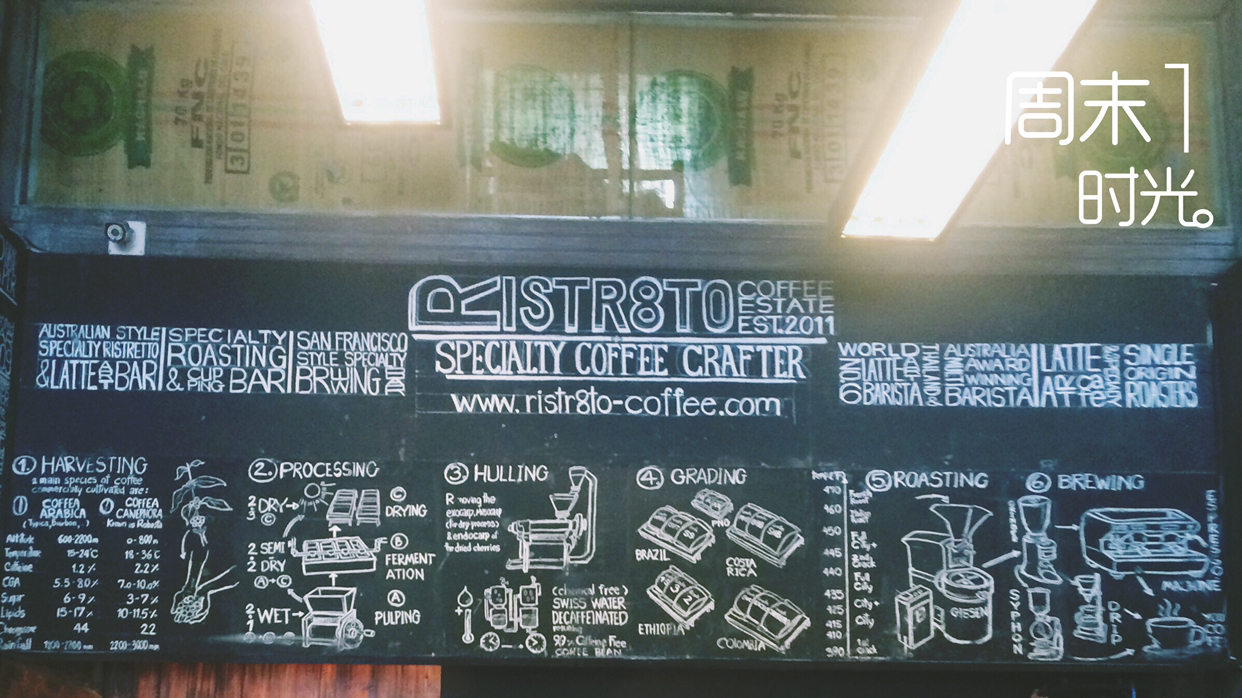 周末
时光。
70 Kg
FNC
301439
70 kg
FNC
RISTR8TO
COFFEE
ESTATE
EST.2011
SPECIALTY COFFEE CRAFTER
www.ristr8to-coffee.com
AUSTRALIAN STYLE
SPECIALTY RISTRETTO
&LATTE ART BAR
SPECIALTY
ROASTING
& CUPPING BAR
SAN FRANCISCO
STYLE SPECIALTY
BREWING BAR
WORLD
LATTE
BARISTA
AUSTRALIA
AWARD
WINNING
BARISTA
LATTE
SINGLE
ORIGIN
ROASTERS
① HARVESTING
2 main species of coffee
commercially cultivated are:
① COFFEA ARABICA
② COFFEA CANEPHORA
(Typica, Bourbon, )
Known as Robusta
Altitude 600-2200m 0-800m
Temperature 15-24°C 18-36°C
Caffeine 1.2% 2.2%
CGA 5.5-8.0% 7.0-10.0%
Sugar 6-9% 3-7%
Lipids 15-17% 10-11.5%
Chromosome 44 22
Rainfall
②PROCESSING
DRY
SEMI
DRY
Ⓐ→Ⓒ
WET
Ⓒ
DRYING
Ⓑ
FERMENT
ATION
Ⓐ
PULPING
③ HULLING
the
exocarp,
(the dry process)
& endocarp of
the dried cherries
(chemical free)
SWISS WATER
DECAFFEINATED
99% Caffeine Free
COFFEE BEAN
④ GRADING
PNG
BRAZIL
COSTA
RICA
ETHIOPIA
COLOMBIA
⑤ROASTING
470
460
450
445
440
435
425
415
410
390
Full
City+
2nd
Crack
Full
City
City+
City
1st
Crack
GIESEN
⑥ BREWING
SYPHON
DRIP
MACHINE